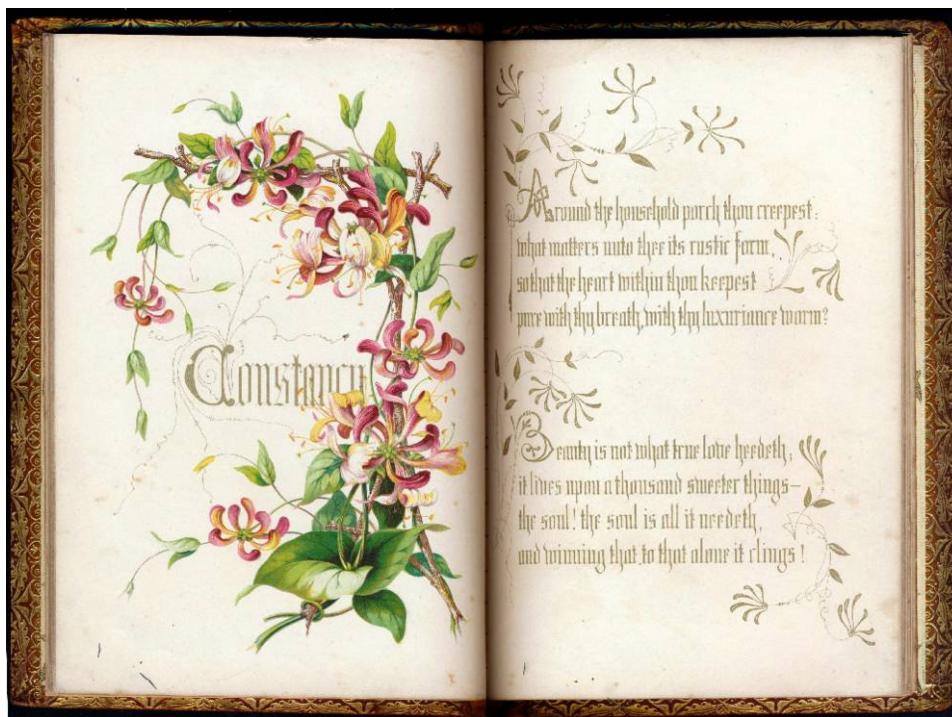 Constancy
Around the household porch thou creepest:
what matters unto thee its rustic form,
so that the heart within thou keepest
pure with thy breath, with thy luxuriance warm?
Beauty is not what true love heedeth;
it lives upon a thousand sweeter things—
the soul! the soul is all it needeth,
and winning that to that alone it clings!